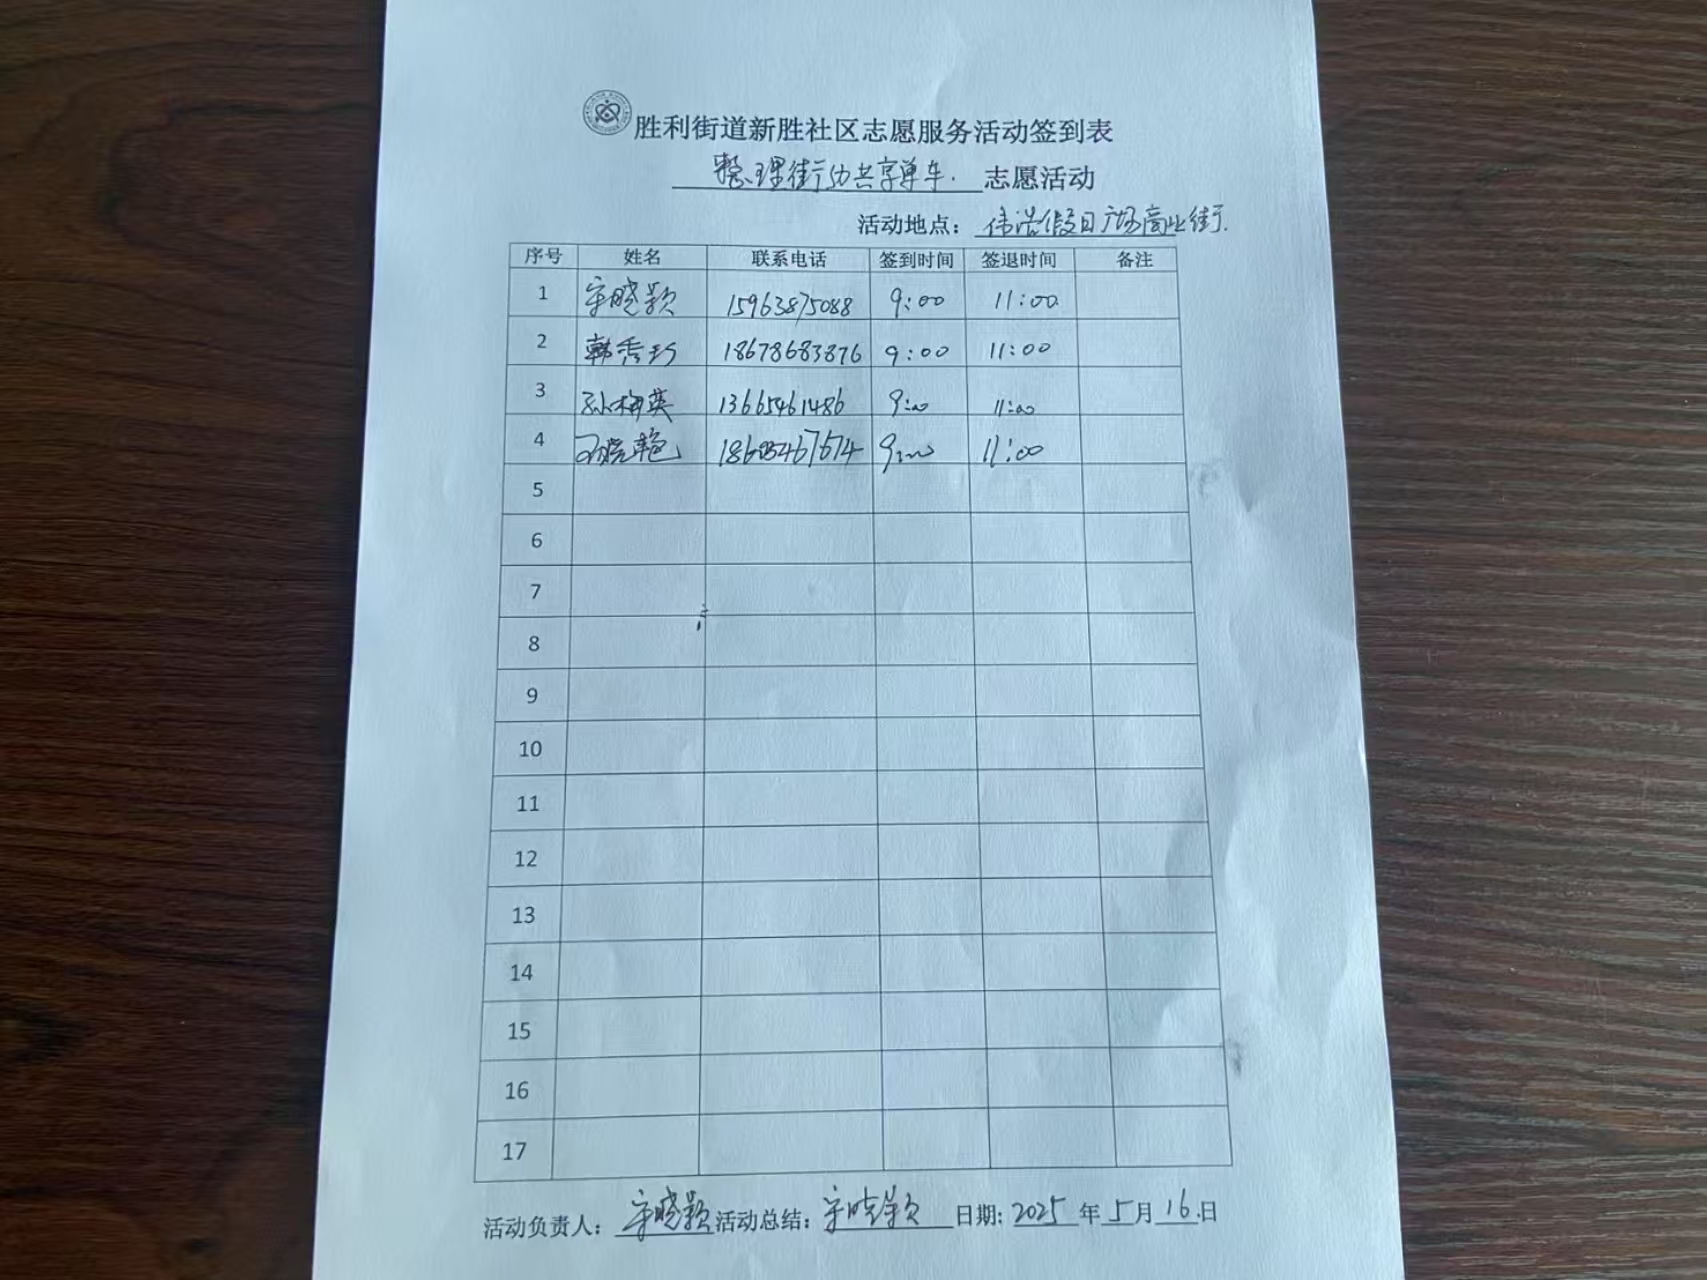 胜利街道新胜社区志愿服务活动签到表
整理街边共享单车. 志愿活动
活动地点: 伟浩假日广场商业街.
序号 姓名 联系电话 签到时间 签退时间 备注
1 宋晓颖 15963875088 9:00 11:00
2 韩秀珍 18678683876 9:00 11:00
3 孙梅英 13665461486 9:00 11:00
4 晓艳 9:00 11:00
5
6
7
8
9
10
11
12
13
14
15
16
17
活动负责人: 宋晓颖 活动总结: 宋晓颖 日期: 2025 年 5 月 16 日